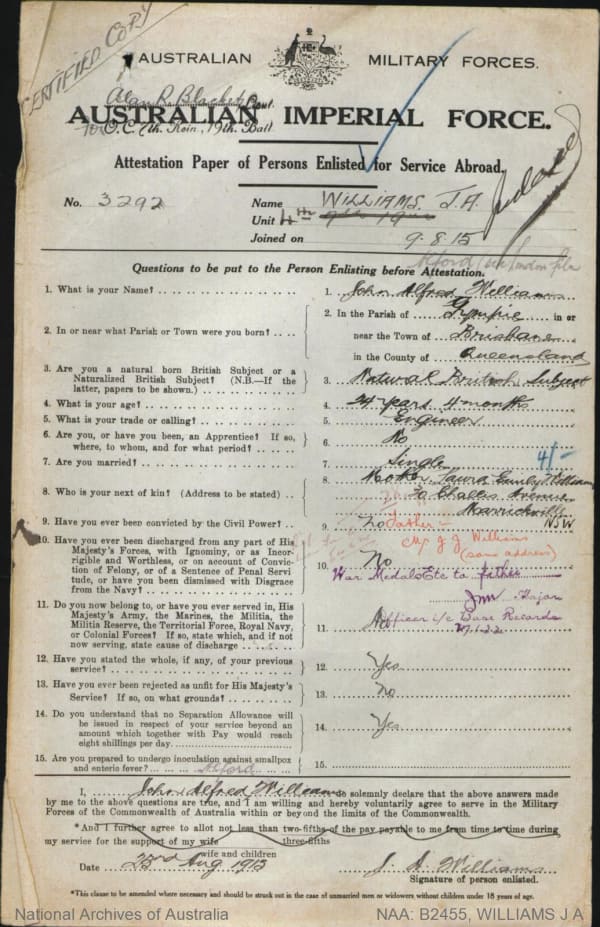 CERTIFIED COPY
AUSTRALIAN MILITARY FORCES.
AUSTRALIAN IMPERIAL FORCE.
O.C. 7th. Rein, 19th. Batt
Attestation Paper of Persons Enlisted for Service Abroad.
No. 3292 Name WILLIAMS. J.A.
Unit
Joined on 9.8.15
Questions to be put to the Person Enlisting before Attestation.
1. What is your Name? 1. John Alfred Williams
2. In or near what Parish or Town were you born? 2. In the Parish of Gympie in or
near the Town of Brisbane
in the County of Queensland
3. Are you a natural born British Subject or a
Naturalized British Subject? (N.B.—If the
latter, papers to be shown.) 3. Natural British Subject
4. What is your age? 4. 24 years 4 months
5. What is your trade or calling? 5. Engineer
6. Are you, or have you been, an Apprentice? If so,
where, to whom, and for what period? 6. No
7. Are you married? 7. Single 4/-
8. Who is your next of kin? (Address to be stated) 8. Mother, Laura Emily Williams
70 Challis Avenue
Marrickville
NSW
9. Have you ever been convicted by the Civil Power? 9. No
Father—
Mr J J Williams
(same address)
10. Have you ever been discharged from any part of His
Majesty's Forces, with Ignominy, or as Incor-
rigible and Worthless, or on account of Convict-
tion of Felony, or of a Sentence of Penal Servi-
tude, or have you been Dismissed with Disgrace
from the Navy? 10. No
War Medals Etc to father
Major
Officer i/c Base Records
11. Do you now belong to, or have you ever served in, His
Majesty's Army, the Marines, the Militia, the
Militia Reserve, the Territorial Force, Royal Navy,
or Colonial Forces? If so, state which, and if not
now serving, state cause of discharge 11. No
12. Have you stated the whole, if any, of your previous
service? 12. Yes
13. Have you ever been rejected as unfit for His Majesty's
Service? If so, on what grounds? 13. No
14. Do you understand that no Separation Allowance will
be issued in respect of your service beyond an
amount which together with Pay would reach
eight shillings per day. 14. Yes
15. Are you prepared to undergo inoculation against smallpox
and enteric fever? 15.
Alford
I, John Alfred Williams do solemnly declare that the above answers made
by me to the above questions are true, and I am willing and hereby voluntarily agree to serve in the Military
Forces of the Commonwealth of Australia within or beyond the limits of the Commonwealth.
*And I further agree to allot not less than two-fifths of the pay payable to me from time to time during
three-fifths
my service for the support of my wife
wife and children
Date 23rd Aug 1915 J. A. Williams
Signature of person enlisted.
*This clause to be amended where necessary and should be struck out in the case of unmarried men or widowers without children under 18 years of age.
National Archives of Australia NAA: B2455, WILLIAMS J A